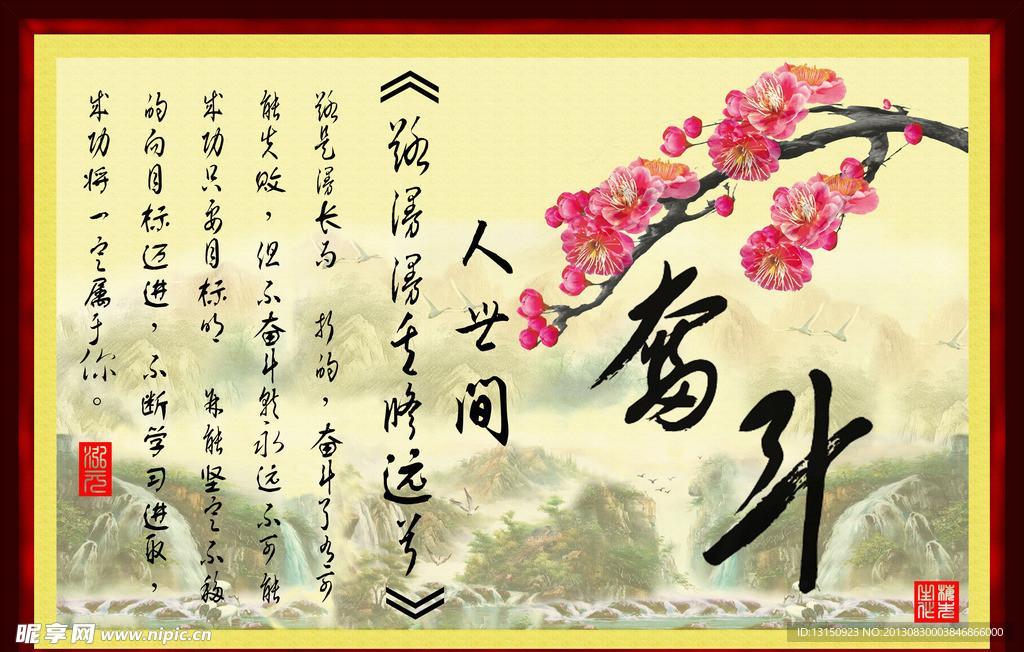 奋斗
人世间
《路漫漫其修远兮》
路是漫长而 折的，奋斗了有可
能失败，但不奋斗就永远不可能
成功只要目标明 并能坚定不移
的向目标迈进，不断学习进取，
成功将一定属于你。
昵享网 www.nipic.cn
ID:13150923 NO:20130830003846866000